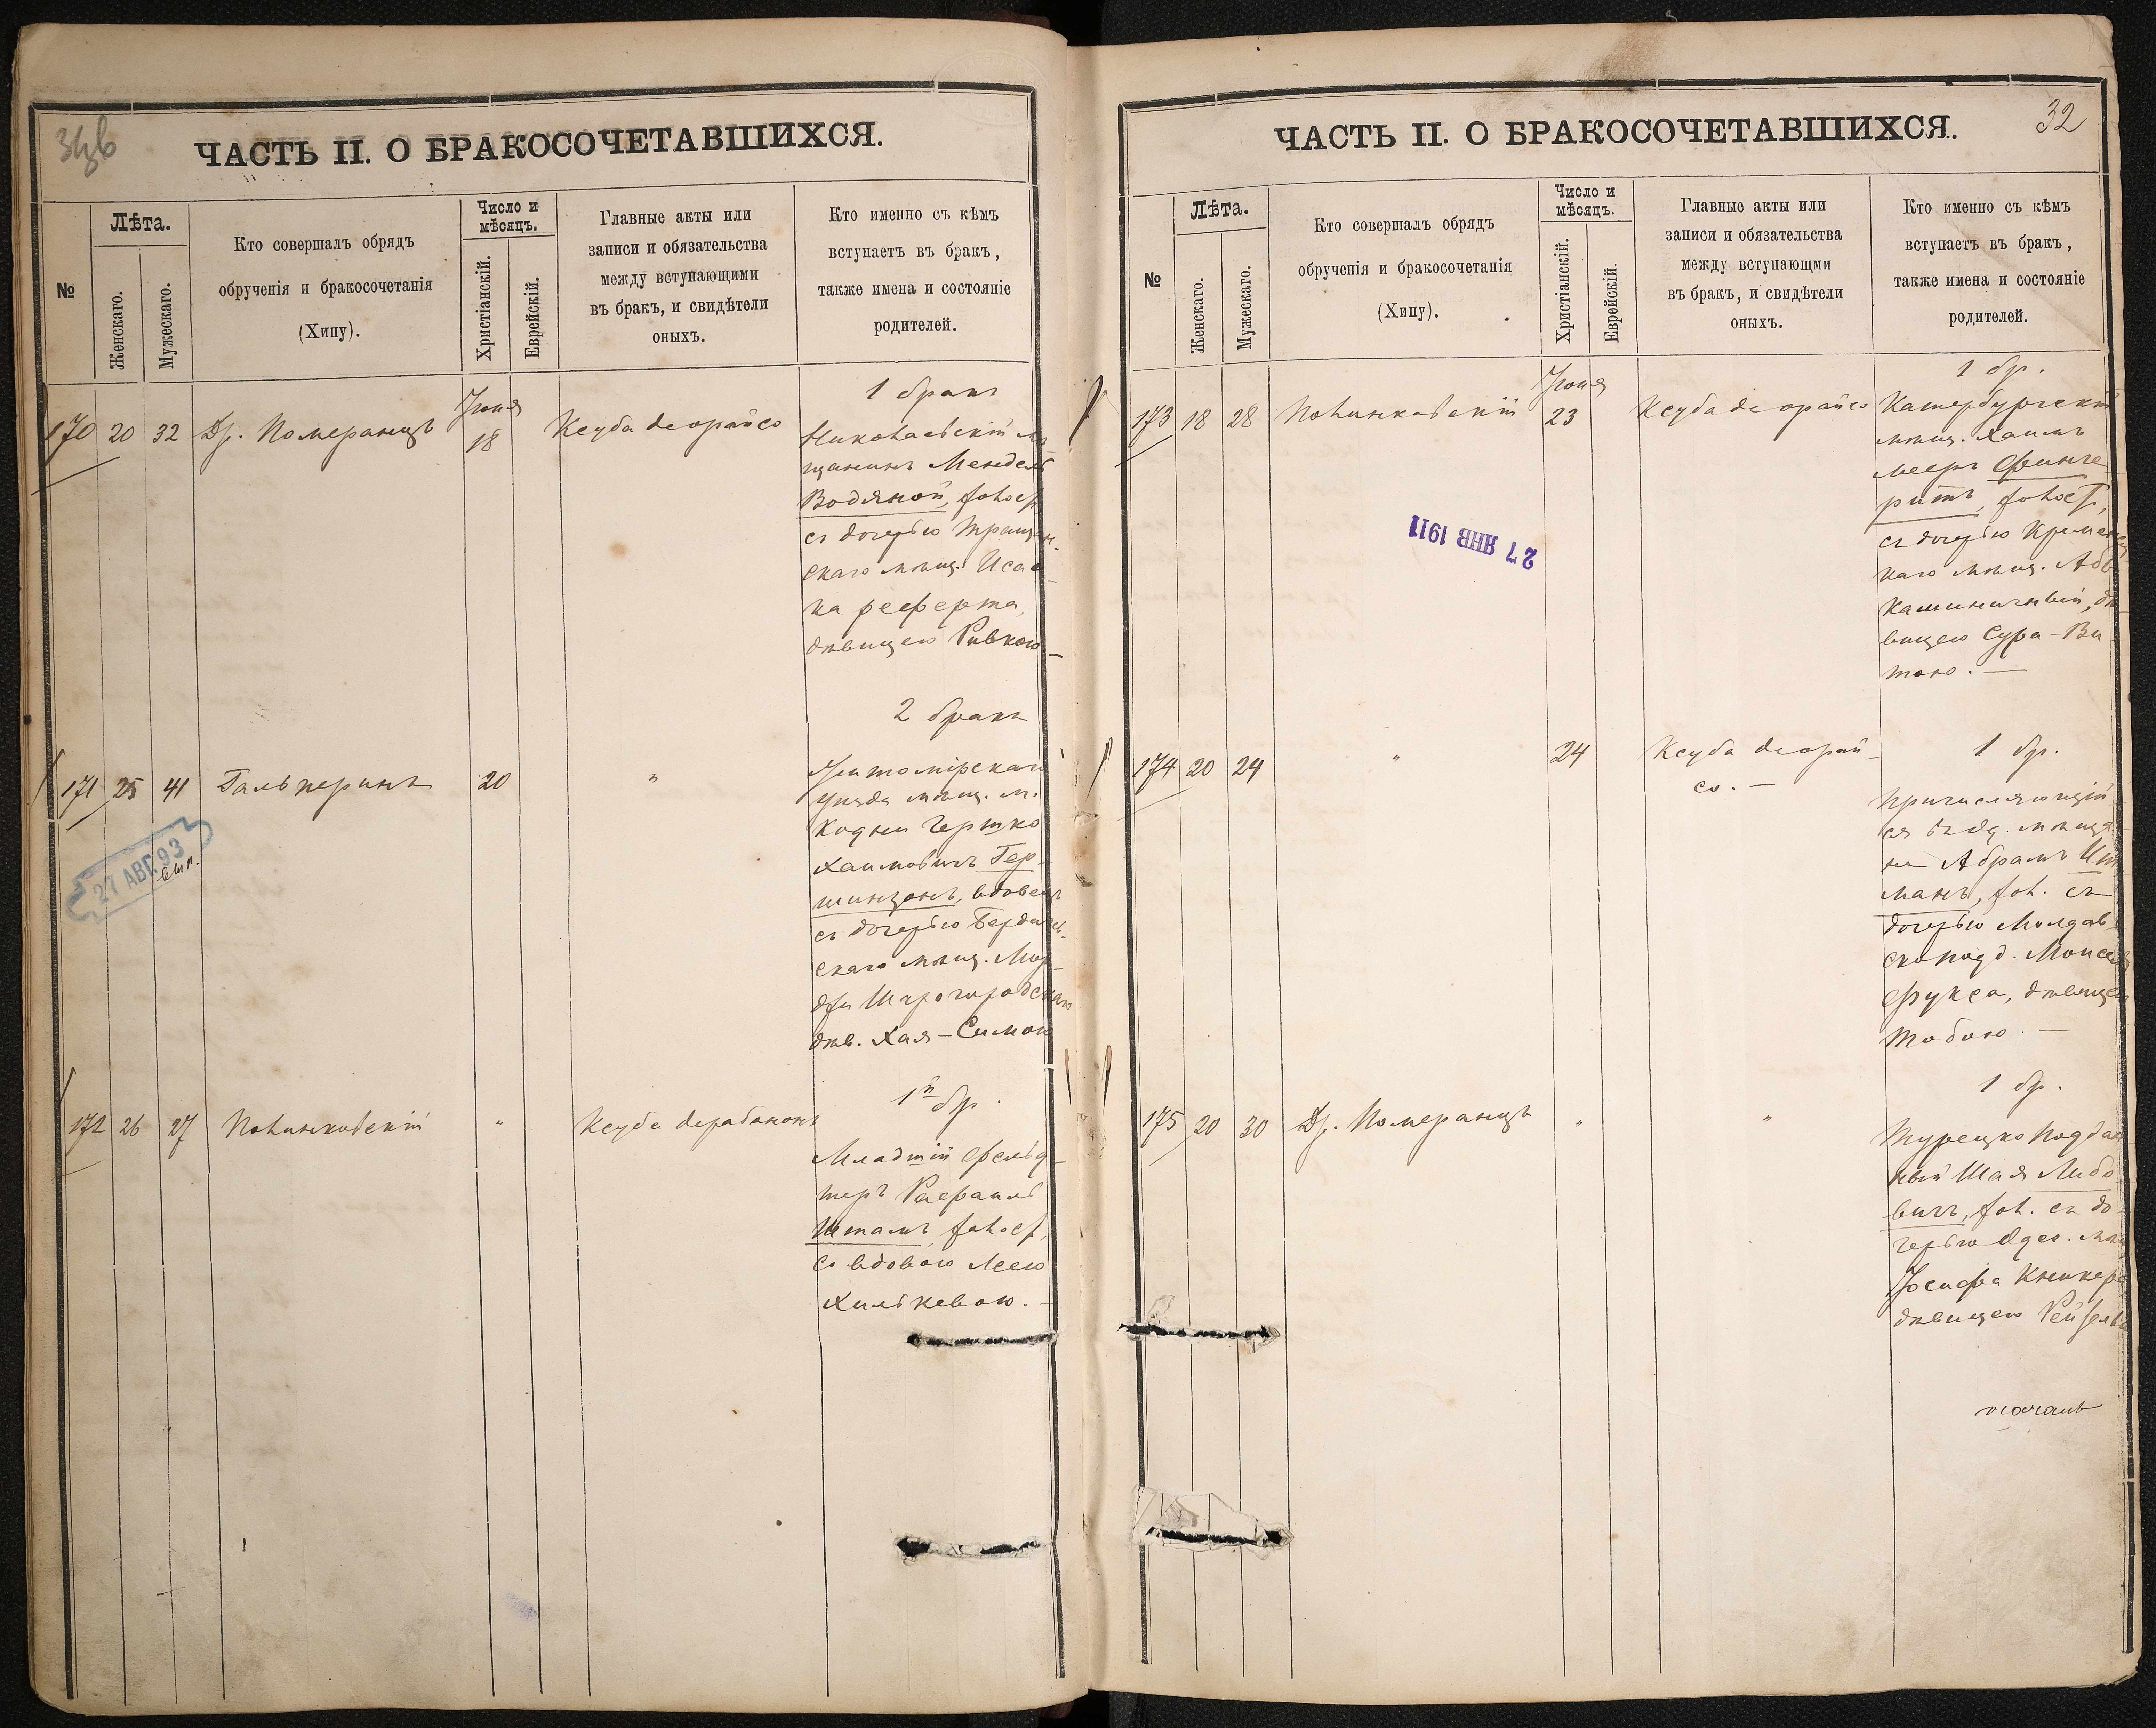 ЧАСТЬ II. О БРАКОСОЧЕТАВШИХСЯ.
№
Лѣта.
Женскаго.
Мужескаго.
Кто совершалъ обрядъ
обрученія и бракосочетанія
(Хипу).
Число и
мѣсяцъ.
Христіанскій.
Еврейскій.
Главные акты или
записи и обязательства
между вступающими
въ бракъ, и свидѣтели
оныхъ.
Кто именно съ кѣмъ
вступаетъ въ бракъ,
также имена и состояніе
родителей.
170 20 32 Др. Померанцъ
Іюня
18
Ксуба деорайсо
1 бракъ
Николаевскій мѣ
щанинъ Мендель
Водяной, холост
съ дочерью
скаго мѣщ. Исаа
ка реферта,
дѣвицею Ривкою –
171 25 41 Гальперинъ
20
"
2 бракъ
Житомірскаго
уѣзда мѣщ. м.
Кодни Гершко
Хаимовичъ Гер-
шинзонъ, вдовецъ
съ дочерью Бердичев-
скаго мѣщ. Мор-
дки Шарогородскаго
дѣв. Хая – Симою
27 АВГ 93
172 26 27 Полинковскій
"
Ксуба дерабанонъ
1й бр.
Младшій фельд-
шеръ Рафаилъ
Штамъ, холост,
со вдовою Леею
Хилькевою. –
ЧАСТЬ II. О БРАКОСОЧЕТАВШИХСЯ.
32
№
Лѣта.
Женскаго.
Мужескаго.
Кто совершалъ обрядъ
обрученія и бракосочетанія
(Хипу).
Число и
мѣсяцъ.
Христіанскій.
Еврейскій.
Главные акты или
записи и обязательства
между вступающми
въ бракъ, и свидѣтели
оныхъ.
Кто именно съ кѣмъ
вступаетъ въ бракъ,
также имена и состояніе
родителей.
173 18 28 Полинковскій
Іюня
23
Ксуба деорайсо
1 бр.
Катербургскій
мѣщ. Хаимъ
Мееръ Финге
рутъ, холост,
съ дочерью Кременец
каго мѣщ.
дѣ
вицею Сура – Ви
тою. –
27 ЯНВ 1911
174 20 24
"
24
Ксуба деорай
со. –
1 бр.
Причисляющій
ся въ Од. мѣща
не Абрамъ
манъ, хол. съ
дочерью Молдав
скопод. Моисея
Фукса, дѣвицею
Тобою. –
175 20 30 Др. Померанцъ
"
"
1 бр.
Турецкоподдан
ный Шая Либо
вичъ, хол. съ до
черью Одес. мѣщ
Іосифа
дѣвицею Рейзел